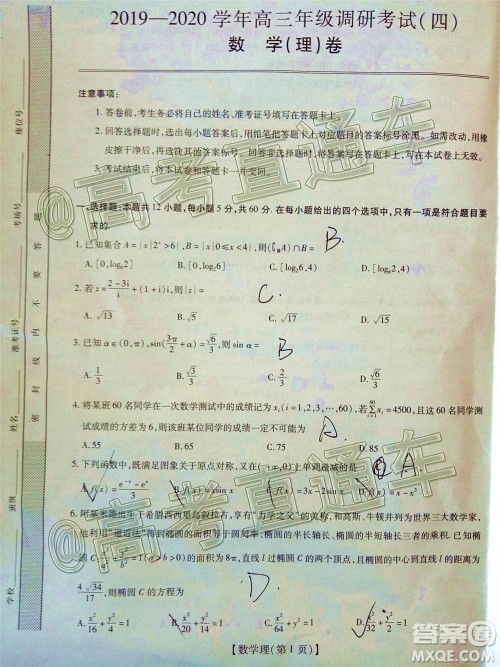 2019—2020 学年高三年级调研考试(四)
数 学(理)卷
注意事项:
1. 答卷前,考生务必将自己的姓名、准考证号填写在答题卡上。
2. 回答选择题时,选出每小题答案后,用铅笔把答题卡上对应题目的答案标号涂黑。如需改动,用橡
皮擦干净后,再选涂其他答案标号。回答非选择题时,将答案写在答题卡上,写在本试卷上无效。
3. 考试结束后,将本试卷和答题卡一并交回。
一、选择题:本题共 12 小题,每小题 5 分,共 60 分. 在每小题给出的四个选项中,只有一项是符合题目要
求的.
1. 已知集合 A={x|2ˣ>6},B={x|0≤x<4},则(∁RA)∩B= B.
A. [0,log₆2] B. [0,log₂6] C. [log₂6,4) D. [log₆2,4)
2. 若 z=(2-3i)/i+(1+i)i,则|z|= C.
A. √13 B. √15 C. √17 D. √19
3. 已知 α∈(0,π),sin(3π/2+α)=√6/3,则 sinα= B
A. 1/3 B. √3/3 C. 2/3 D. √6/3
4. 将某班 60 名同学在一次数学测试中的成绩记为 xᵢ(i=1,2,3,…,60),若 ∑xᵢ=4500,且这 60 名同学测
试成绩的方差为 6,则该班某位同学的成绩不可能是 A.
A. 55 B. 65 C. 75 D. 85
5. 下列函数中,既满足图象关于原点对称,又在(-∞,0)上单调递减的是 A.
A. f(x)= B. f(x)=xsin x C. f(x)=3x-2sin x D. f(x)=x-x³
6. 阿基米德出生于希腊西西里岛叙拉古,享有“力学之父”的美称,和高斯、牛顿并列为世界三大数学家,
D.
4√34/17,则椭圆 C 的方程为
A. x²/16+y²/4=1 B. x²/20+y²/4=1 C. x²/64+y²=1 D. x²/32+y²/2=1
【数学理(第 1 页)】
座位号
考场号
准考证号
姓名
班级
学校
密 封 线 内 不 要 答 题
@高考直通车
@高考直通车
@高考直通车
答案圈
MXQE.COM